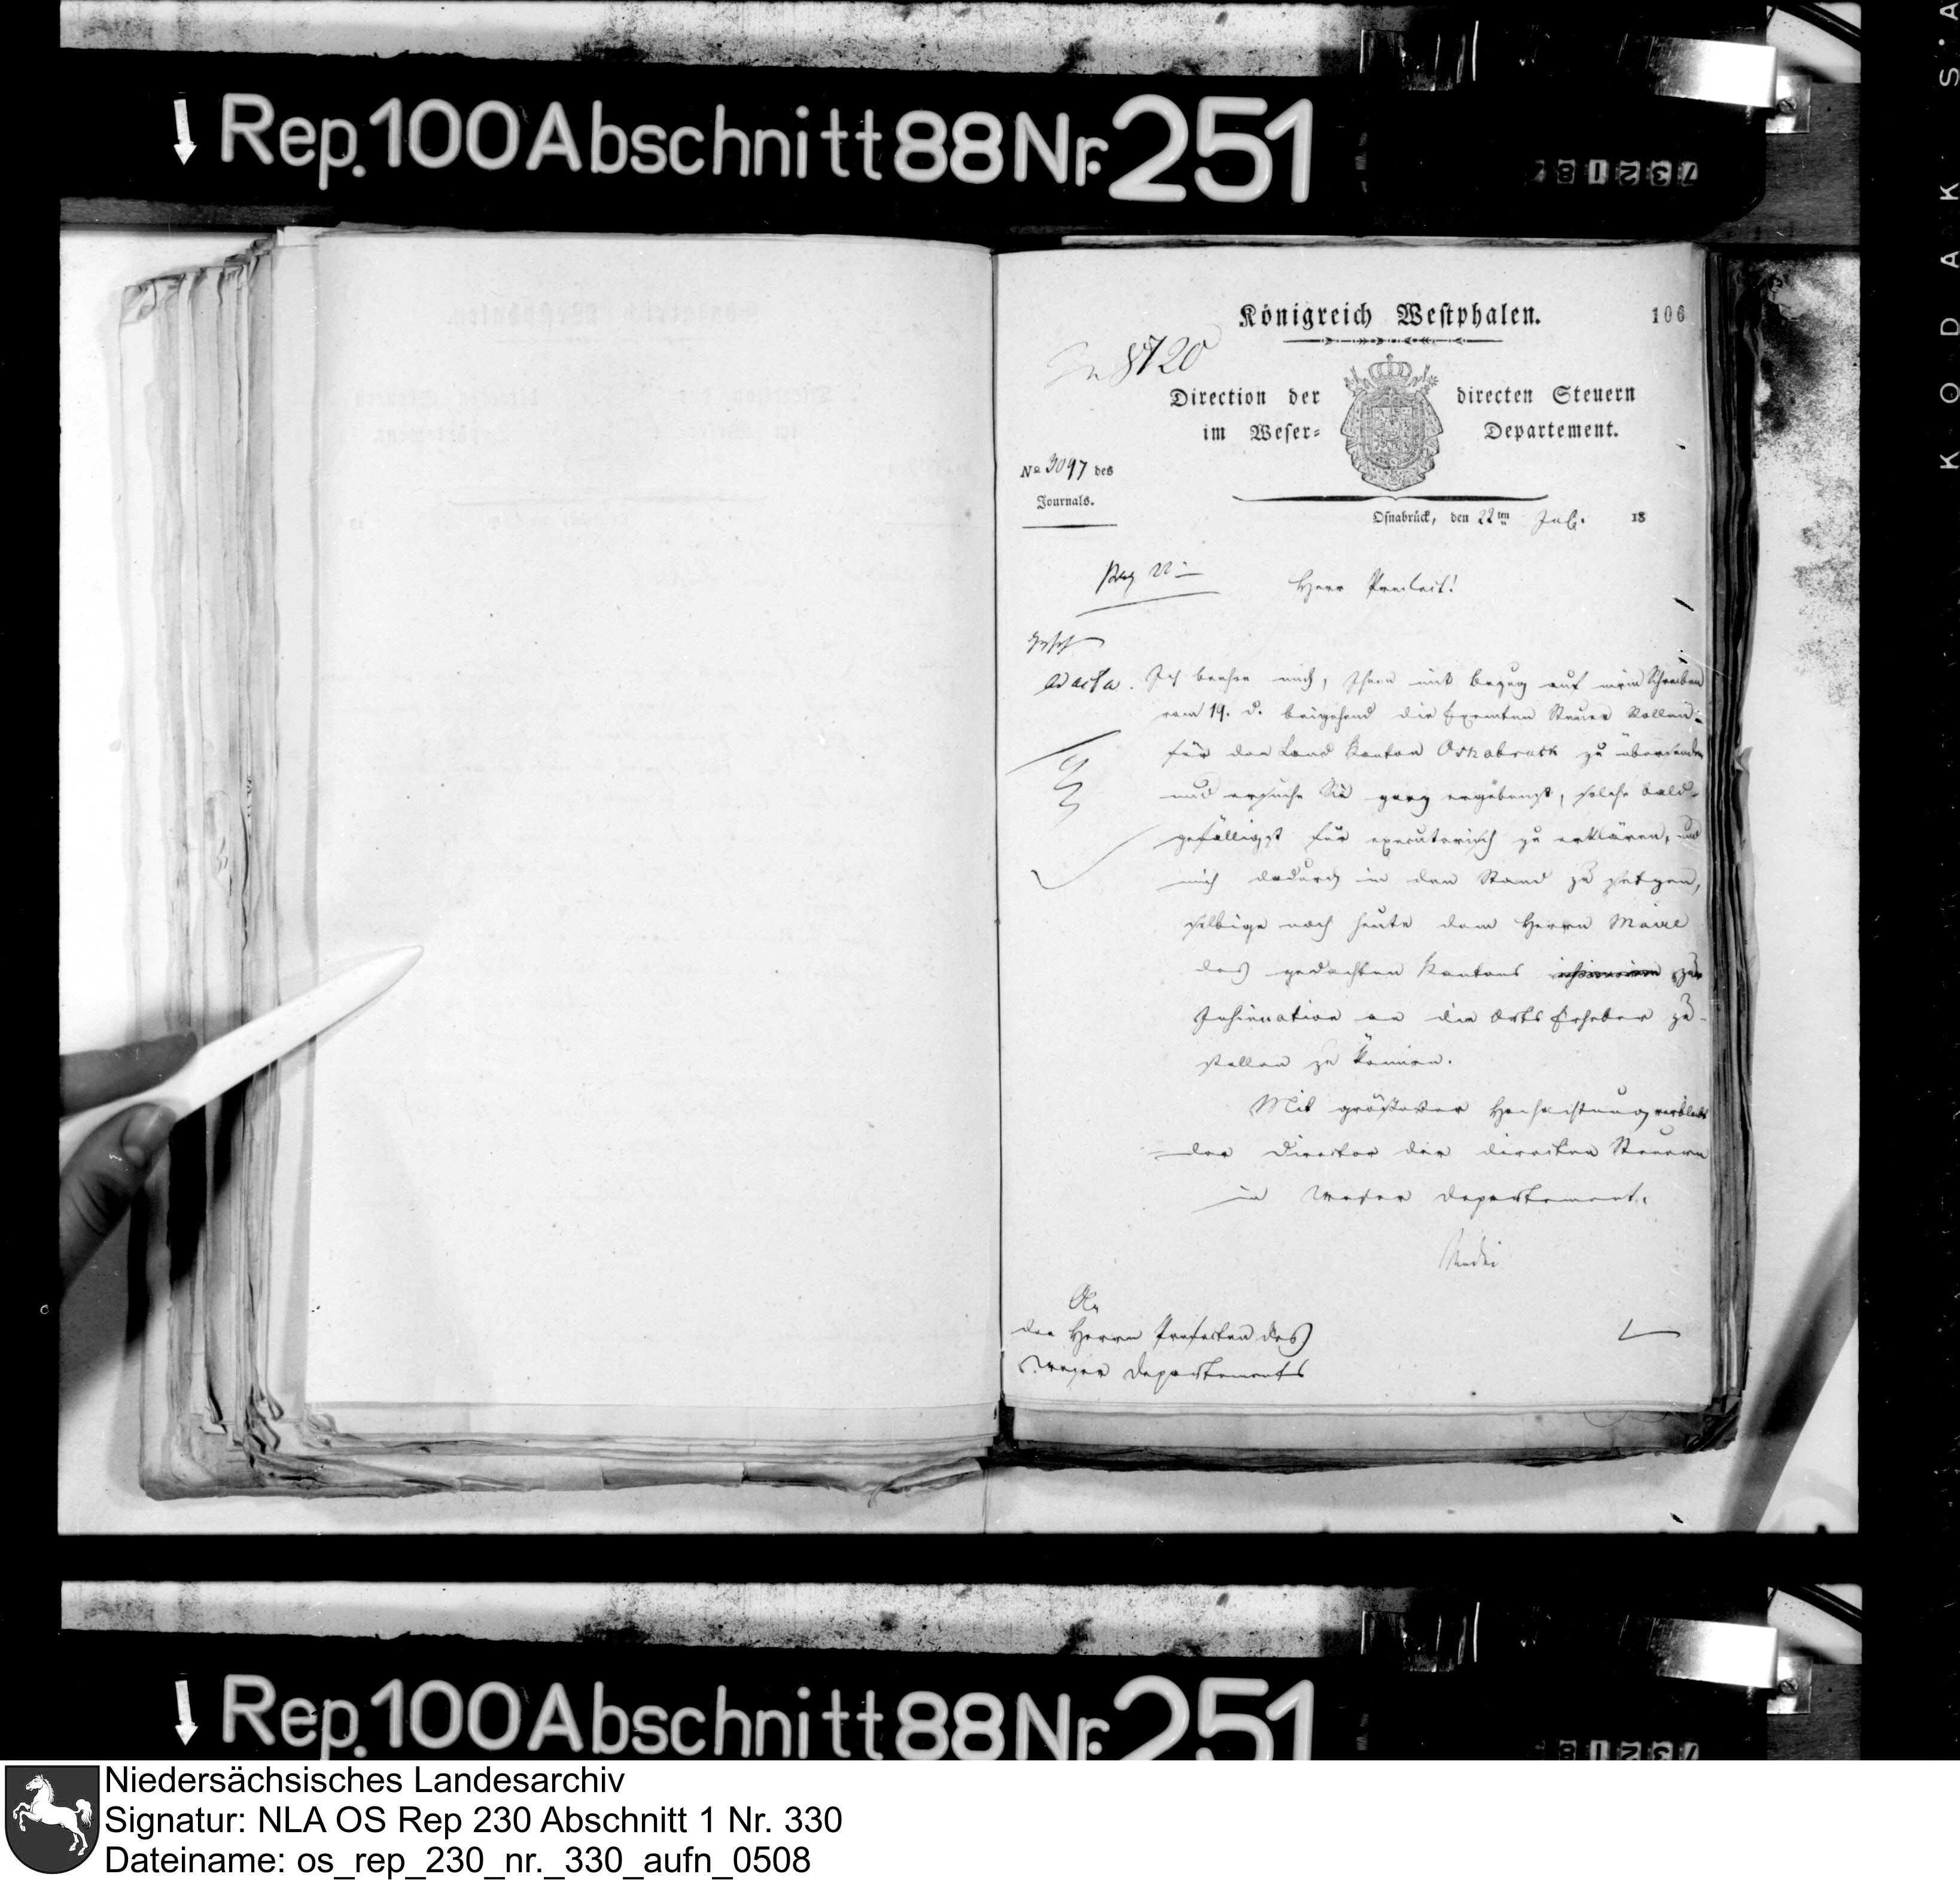 ↓ Rep. 100 Abschnitt 88 Nr. 251
Königreich Westphalen.
106
8720
Direction der directen Steuern
im Weser- Departement.
No 3097 des
Journals.
Osnabrück, den 22ten Jul. 18
Herr Praefect!
ad acta.
Ich beehre mich, Ihnen mit Bezug auf mein Schreiben
vom 19. d. beigehend die Exemten Steuer Rollen
für den Land Kanton Osnabrück zu übersenden
und ersuche Sie ganz ergebenst, solche bald-
gefälligst für executorisch zu erklären, und
mich dadurch in den Stand zu setzen,
selbige noch heute dem Herrn Maire
des gedachten Kantons zur
Insinuation an die Orts Erheber zu-
stellen zu können.
Mit größester Hochachtung verbleibt
der Director der directen Steuern
im Weser Departement.
An
den Herrn Prefecten des
Weser Departements
KODAK S.A
↓ Rep. 100 Abschnitt 88 Nr. 251
Niedersächsisches Landesarchiv
Signatur: NLA OS Rep 230 Abschnitt 1 Nr. 330
Dateiname: os_rep_230_nr._330_aufn_0508